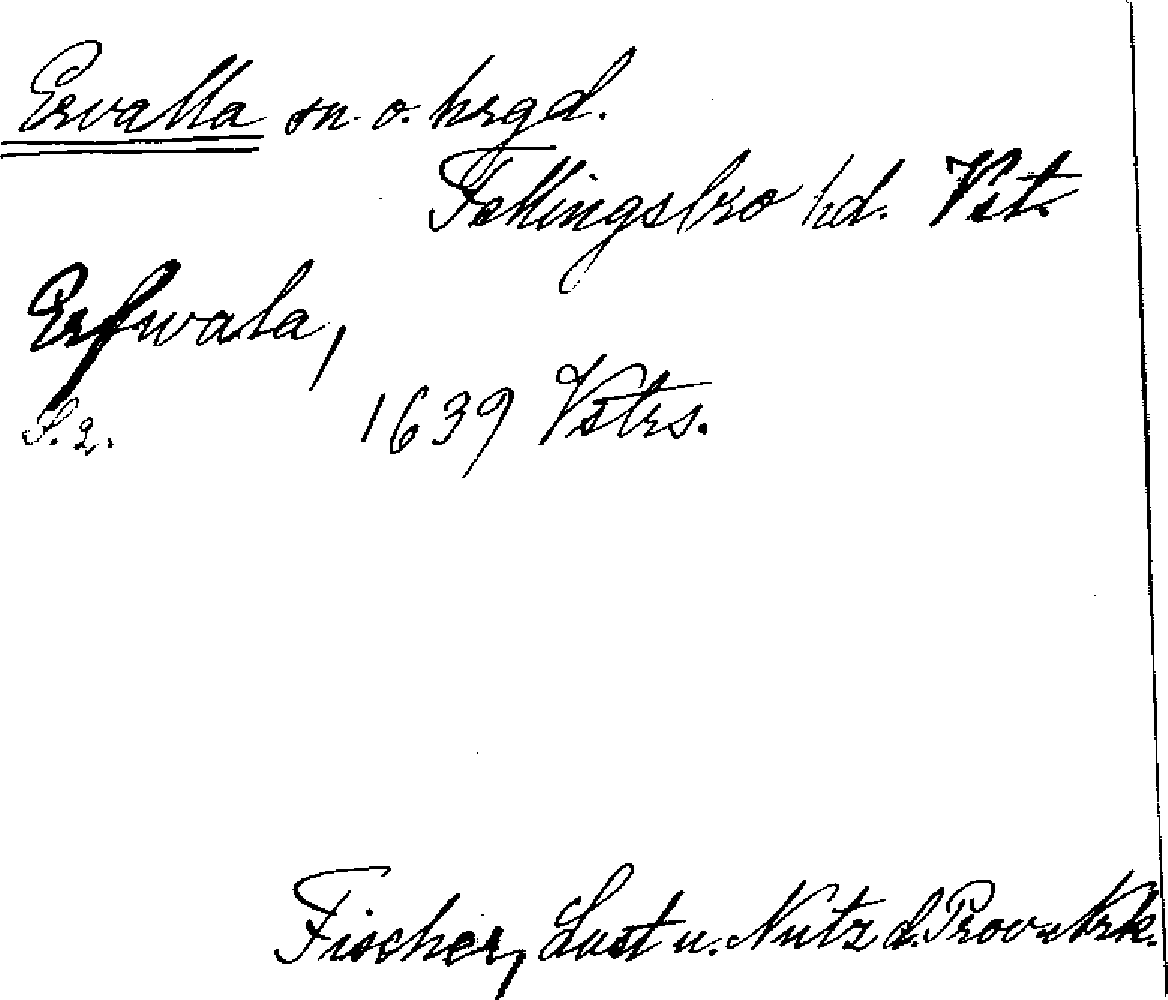 Ervalla sn. o. hrgd.
Fellingsbro hd. Vst.
Erfwala,
S. 2. 1639 Vstrs.
Fischer, Lust u. Nutz d. Prov. Nrk.